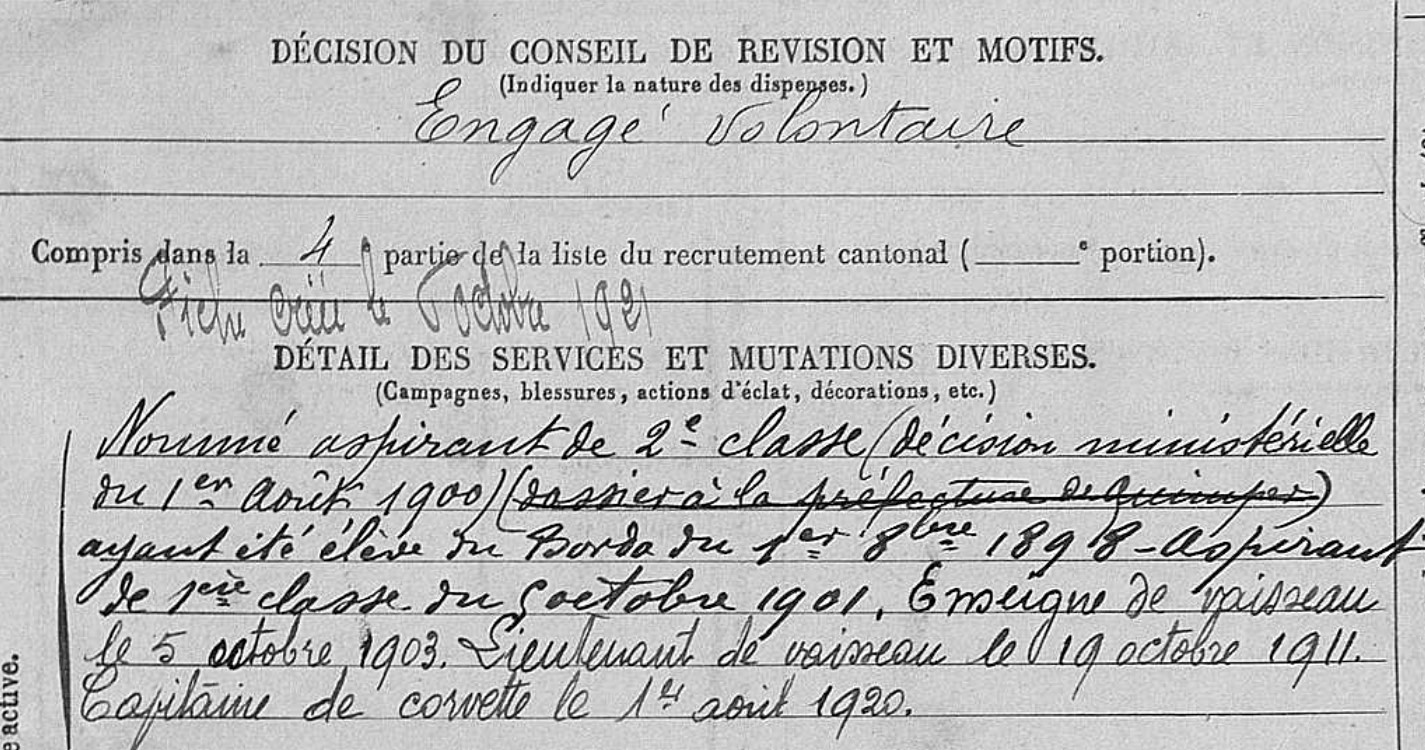 DÉCISION DU CONSEIL DE REVISION ET MOTIFS.
(Indiquer la nature des dispenses.)
Engagé volontaire
Compris dans la 4 e partie de la liste du recrutement cantonal ( e portion).
Fiche créée le octobre 1921
DÉTAIL DES SERVICES ET MUTATIONS DIVERSES.
(Campagnes, blessures, actions d'éclat, décorations, etc.)
Nommé aspirant de 2e classe (décision ministérielle
du 1er Août 1900) (dossier à la préfecture de Quimper)
ayant été élève du Borda du 1er 8bre 1898 - Aspirant
de 1ère classe du 5 octobre 1901. Enseigne de vaisseau
le 5 octobre 1903. Lieutenant de vaisseau le 19 octobre 1911.
Capitaine de corvette le 1er août 1920.
e active.